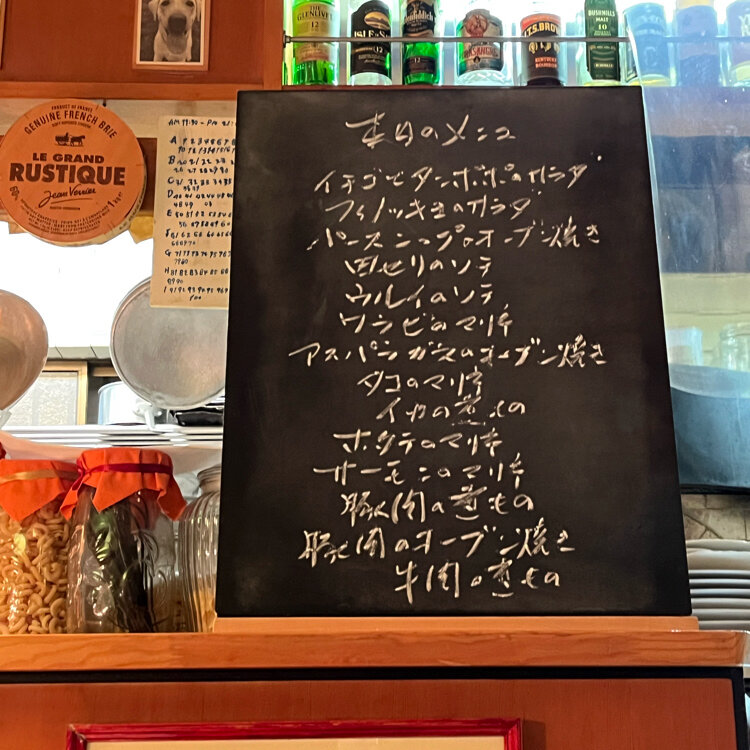 THE
GLENLIVET
12
ISLE OF S
12
Glenfiddich
12
I.W. BROWN
KENTUCKY
BOURBON
BUSHMILLS
MALT
10
PRODUCT OF FRANCE
GENUINE FRENCH BRIE
LE GRAND
RUSTIQUE
Jean Verrier
本日のメニュ
イチゴとタンポポのサラダ
フィノッキョのサラダ
パースニップのオーブン焼き
田セリのソテ
ウルイのソテ
ワラビのマリネ
アスパラガスのオーブン焼き
タコのマリネ
イカの煮もの
ホタテのマリネ
サーモンのマリネ
豚肉の煮もの
豚肉のオーブン焼き
牛肉の煮もの